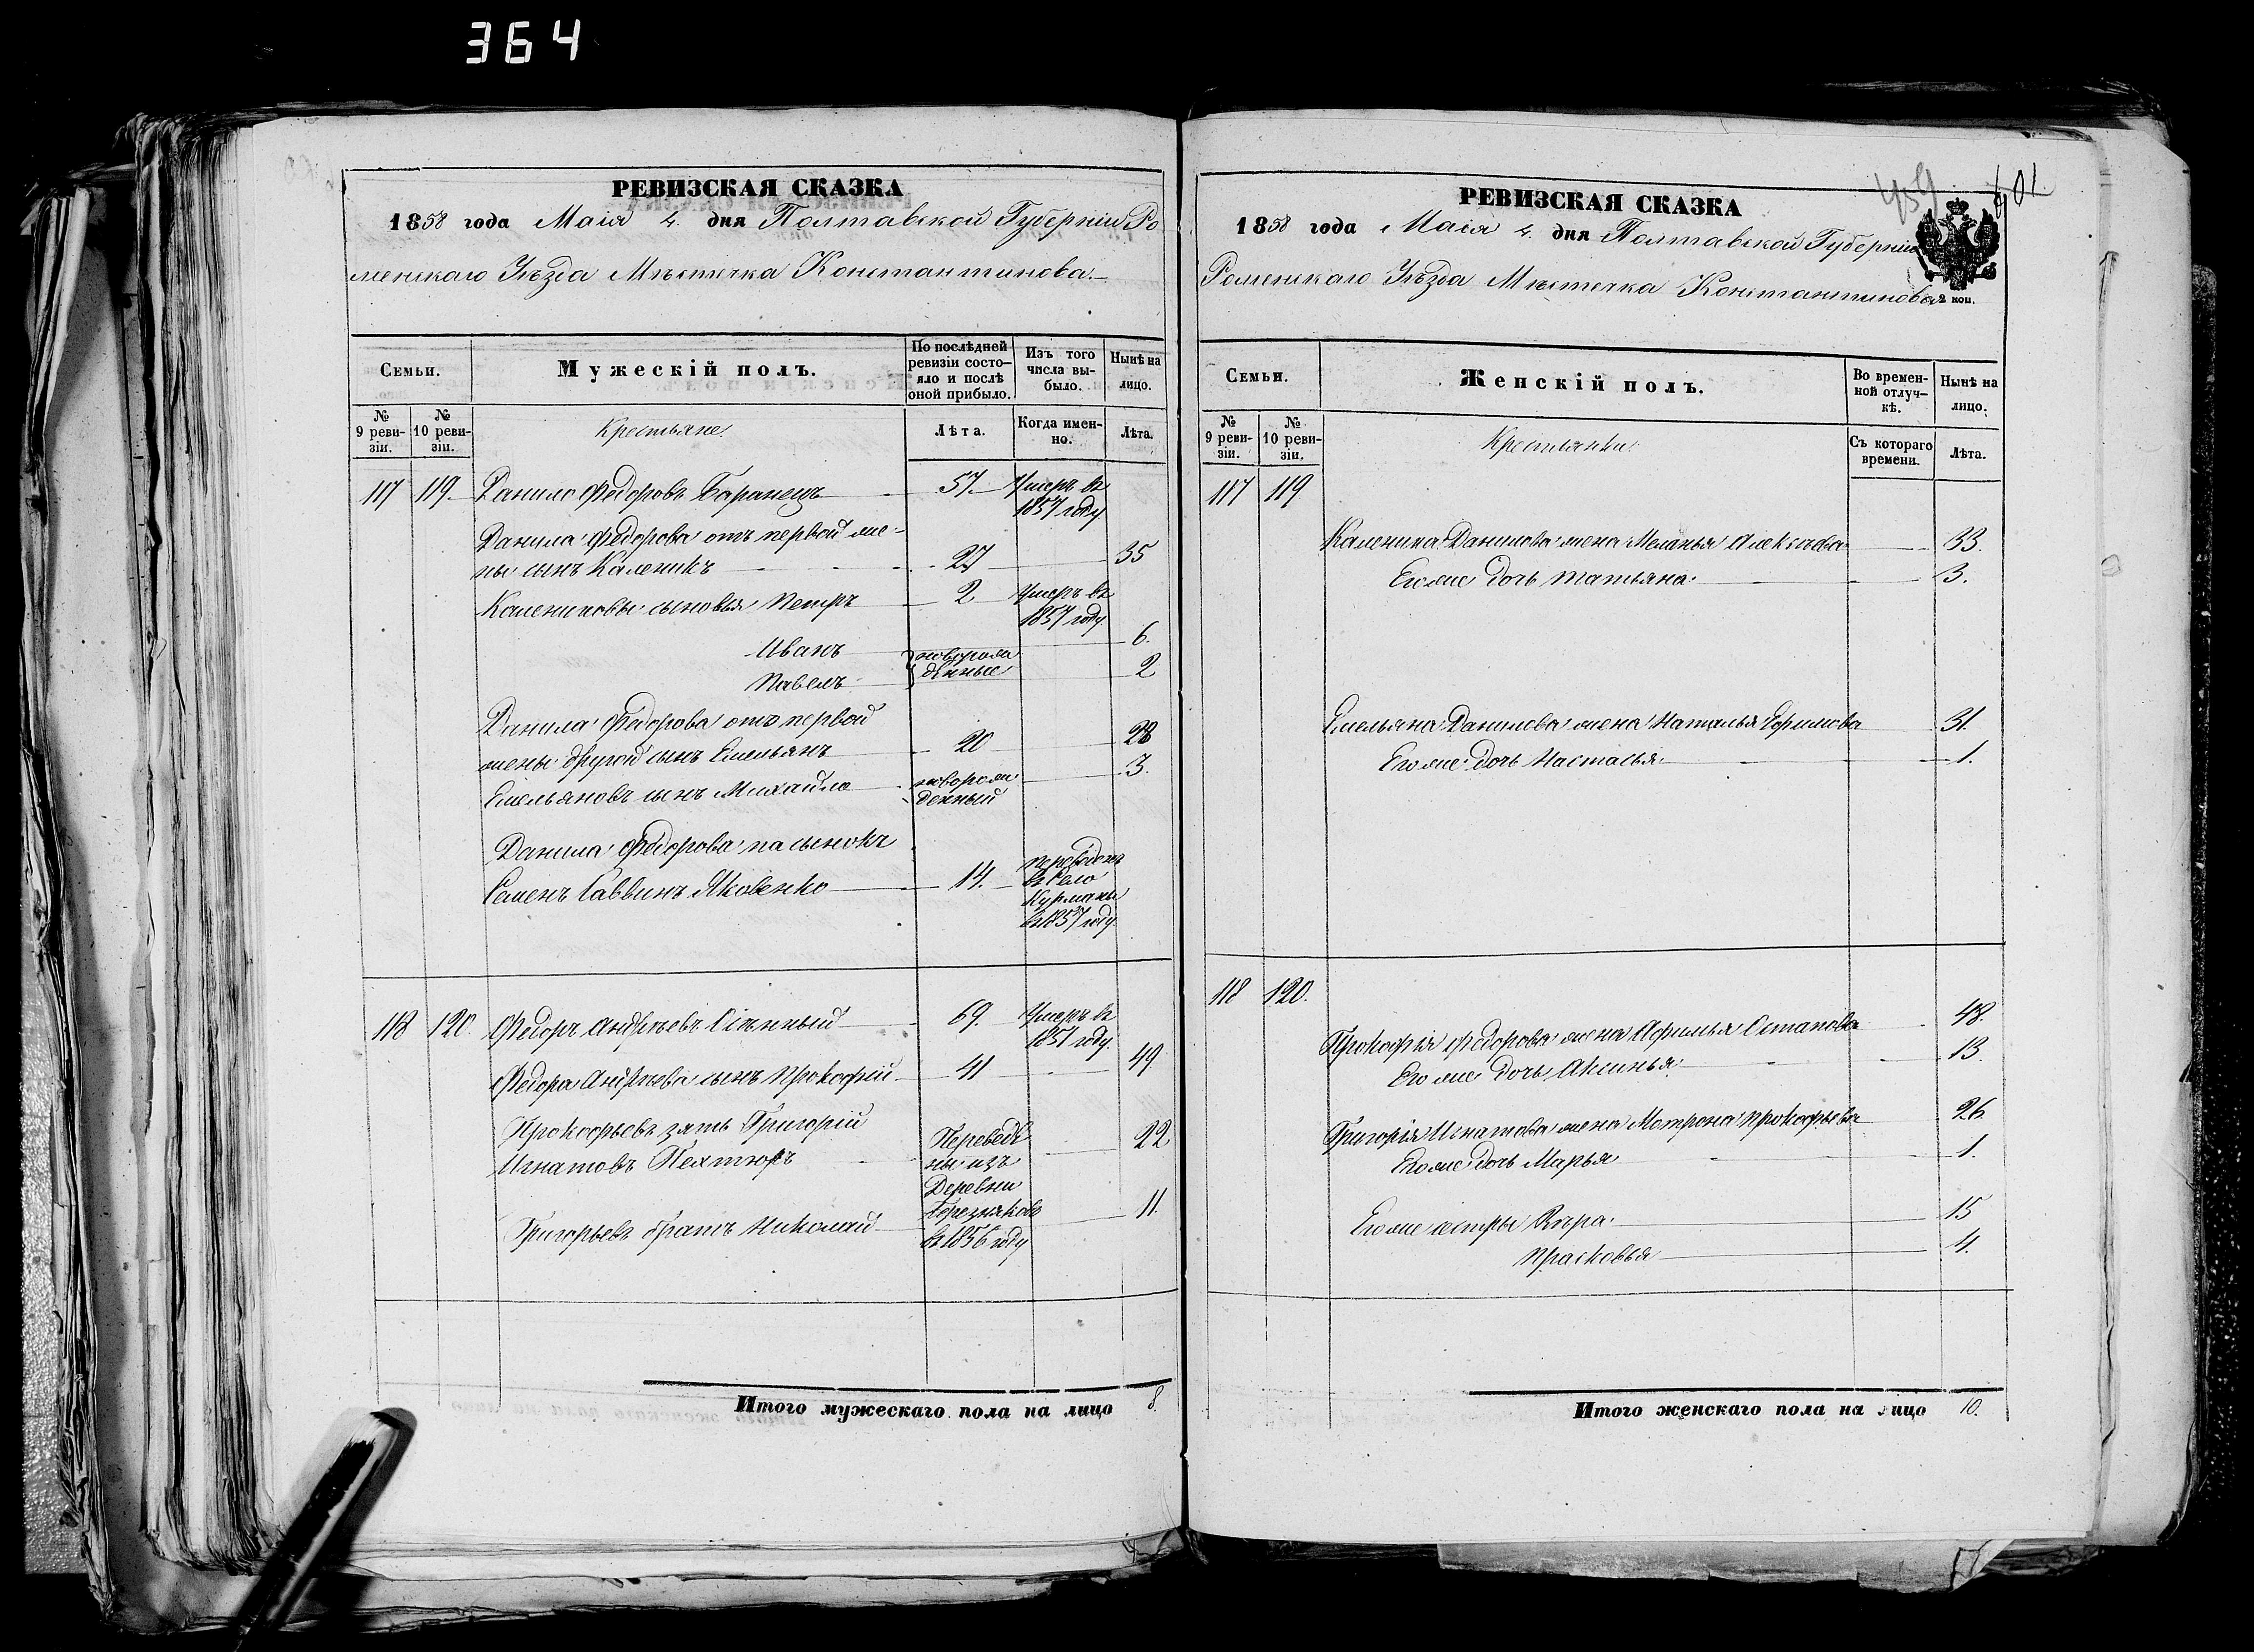 364
РЕВИЗСКАЯ СКАЗКА
1858 года Маія 4. дня Полтавской Губерніи Ро
менскаго Уѣзда Мѣстечка Константинова.
Семьи.
Мужескій полъ.
По послѣдней ревизіи состо-яло и послѣ оной прибыло.
Изъ того числа вы-было.
Нынѣ на лицо.
№ 9 реви-зіи.
№ 10 реви-зіи.
Крестьяне.
Лѣта.
Когда имен-но.
Лѣта.
117 119. Данило Федоровъ Баранецъ 57. Умеръ въ
1857 году.
Данила Федорова отъ первой же-
ны сынъ Каленикъ 27 35
Калениковы сыновья Петръ 2 Умеръ въ
1857 году.
Иванъ 6.
Павелъ новорож
денные 2
Данила Федорова отъ первой
жены другой сынъ Емельянъ 20 28
Емельяновъ сынъ Михайло новорож
денный 3.
Данила Федорова пасынокъ
Семенъ Саввинъ Яковенко 14. переведенъ
въ село
Курманы
въ 1857 году.
118 120. Федоръ Андреевъ Сѣнный 69. Умеръ въ
1851 году.
Федора Андреева сынъ Прокофій 41 49
Прокофьевъ зять Григорій
Игнатовъ 22
Переведѣ
ны изъ
Деревни
въ 1856 году
Григорьевъ братъ Николай 11.
Итого мужескаго пола на лицо 8.
459
401.
РЕВИЗСКАЯ СКАЗКА
1858 года Маія 4. дня Полтавской Губерніи
Роменскаго Уѣзда Мѣстечка Константинова
2 коп.
Семьи.
Женскій полъ.
Во времен-ной отлуч-кѣ.
Нынѣ на лицо.
№ 9 реви-зіи.
№ 10 реви-зіи.
Крестьянки.
Съ котораго времени.
Лѣта.
117 119
Каленика Данилова жена Меланья Алексѣева 33.
Его же дочь Татьяна 3.
Емельяна Данилова жена Наталья Ефимова 31.
Его же дочь Настасья 1.
118 120.
Прокофія Федорова жена Афимья Остапова 48.
Его же дочь Аксинья 13.
Григорія Игнатова жена Мотрона Прокофьева 26.
Его же дочь Марья 1.
Его же сестры Вѣра 15
Прасковья 4.
Итого женскаго пола на лицо 10.